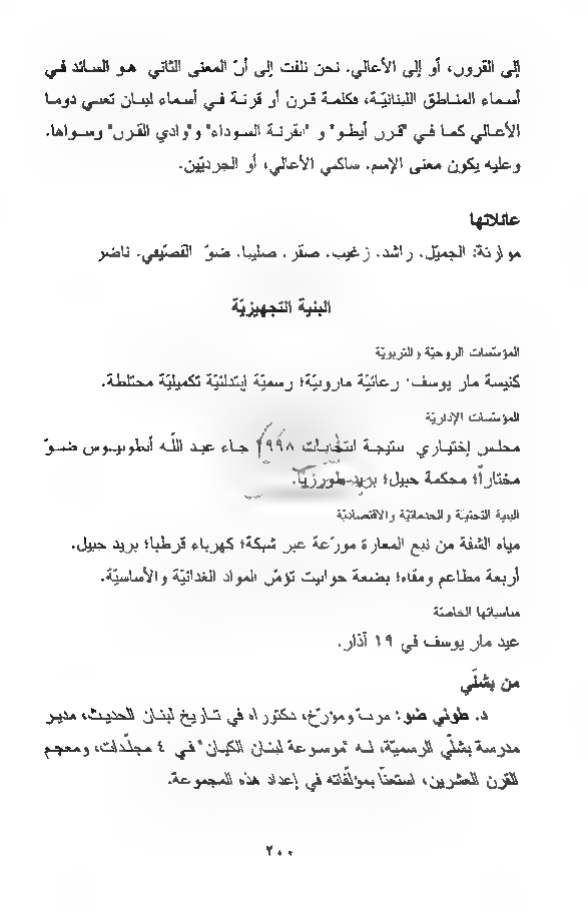 إلى القرون، أو إلى الأعالي. نحن نلفت إلى أنّ المعنى الثاني هو السائد في
أسماء المناطق اللبنانيّة، فكلمة قرن أو قرنة في أسماء لبنان تعني دوما
الأعالي كما في "قرن أيطو" و "القرنة السوداء" و"وادي القرن" وسواها.
وعليه يكون معنى الإسم. ساكني الأعالي، أو الجرديّين.
عائلاتها
موارنة: الجميّل. راشد. زغيب. صقر. صليبا. ضوّ القصّيفي. ناضر
البنية التجهيزيّة
المؤسّسات الروحيّة والتربويّة
كنيسة مار يوسف: رعائيّة مارونيّة؛ رسميّة إبتدائيّة تكميليّة مختلطة.
المؤسّسات الإداريّة
مجلس إختياري بنتيجة انتخابات ١٩٩٨ جاء عبد اللّه أنطونيوس ضوّ
مختاراً؛ محكمة جبيل؛ بريد طورزيّا.
البنية التحتيّة والخدماتيّة والاقتصاديّة
مياه الشفة من نبع المغارة موزّعة عبر شبكة؛ كهرباء قرطبا؛ بريد جبيل.
أربعة مطاعم ومقاه؛ بضعة حوانيت تؤمّن المواد الغذائيّة والأساسيّة.
مناسباتها الخاصّة
عيد مار يوسف في ١٩ آذار.
من بشلّي
د. طوني ضو: مربّ ومؤرّخ، دكتوراه في تاريخ لبنان الحديث، مدير
مدرسة بشلّي الرسميّة، له "موسوعة لبنان الكيان" في ٤ مجلّدات، ومعجم
القرن العشرين، استعنّا بمؤلّفاته في إعداد هذه المجموعة.
٢٠٠